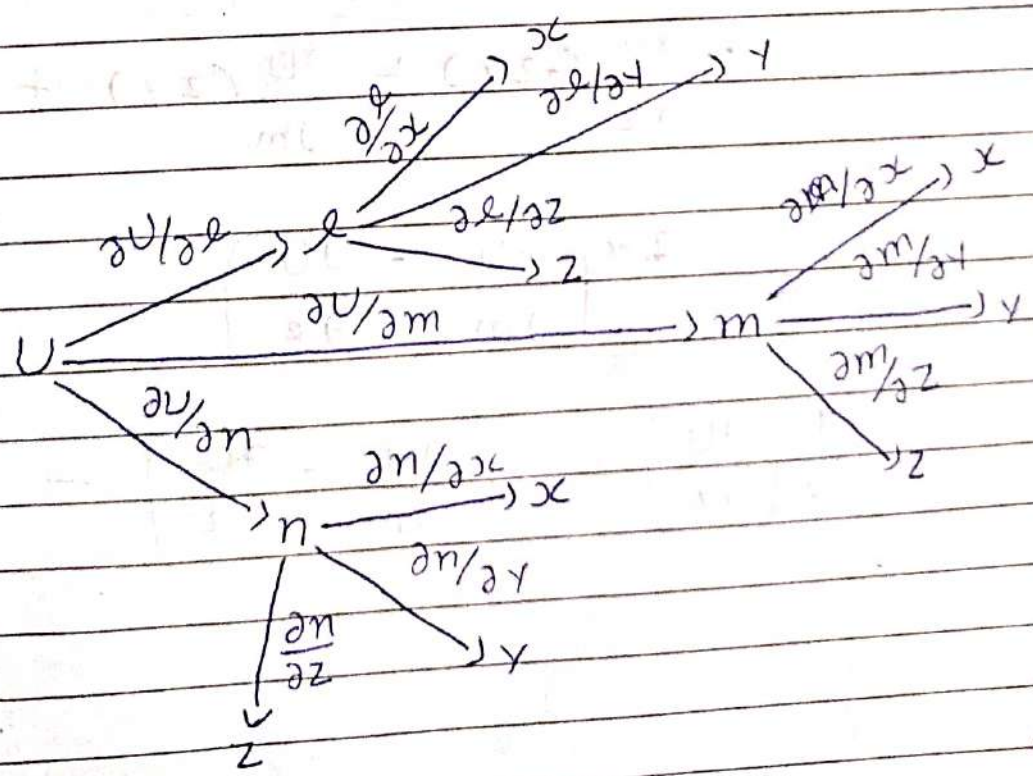 x
∂l/∂x
∂l/∂y
y
∂U/∂l
l
∂l/∂z
z
∂m/∂x
x
∂U/∂m
m
∂m/∂y
y
U
∂m/∂z
z
∂U/∂n
n
∂n/∂x
x
∂n/∂y
y
∂n/∂z
z